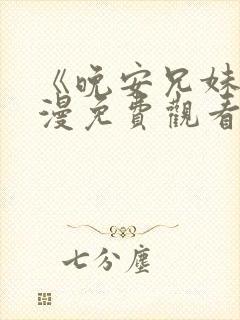 《晚安兄妹
漫免費觀看
七分塵